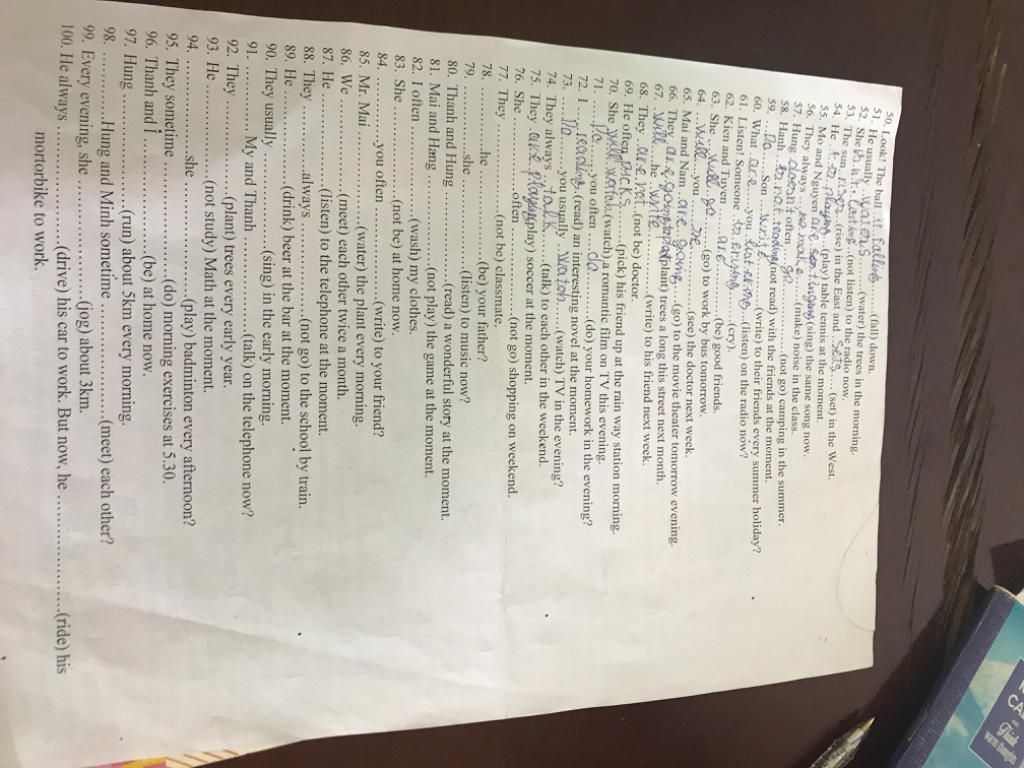 50. Look! The ball is falling (fall) down.
51. He usually waters (water) the trees in the morning.
52. She isn't listening (not listen) to the radio now.
53. The sun rises (rise) in the East and sets (set) in the West.
54. He is playing (play) table tennis at the moment.
55. Mo and Nguyen are (sing) the same song now.
56. They always (make) noise in the class.
57. Hung doesn't often go (not go) camping in the summer.
58. Hanh reading (not read) with the friends at the moment.
59. Do Son write (write) to their friends every summer holiday?
60. What are you listening (listen) on the radio now?
61. Listen! Someone is crying (cry).
62. Kien and Tuyen are (be) good friends.
63. She will go (go) to work by bus tomorrow.
64. Will you (see) the doctor next week.
65. Mai and Nam are going (go) to the movie theater tomorrow evening.
66. They are going to plant (plant) trees a long this street next month.
67. Will he write (write) to his friend next week.
68. They are not (not be) doctor.
69. He often picks (pick) his friend up at the rain way station morning.
70. She will watch (watch) a romantic film on TV this evening.
71. Do you often do (do) your homework in the evening?
72. I reading (read) an interesting novel at the moment.
73. Do you usually watch (watch) TV in the evening?
74. They always talk (talk) to each other in the weekend.
75. They are playing (play) soccer at the moment.
76. She often (not go) shopping on weekend.
77. They (not be) classmate.
78. he (be) your father?
79. she (listen) to music now?
80. Thanh and Hung (read) a wonderful story at the moment.
81. Mai and Hang (not play) the game at the moment.
82. I often (wash) my clothes.
83. She (not be) at home now.
84. you often (write) to your friend?
85. Mr. Mai (water) the plant every morning.
86. We (meet) each other twice a month.
87. He (listen) to the telephone at the moment.
88. They always (not go) to the school by train.
89. He (drink) beer at the bar at the moment.
90. They usually (sing) in the early morning.
91. My and Thanh (talk) on the telephone now?
92. They (plant) trees every early year.
93. He (not study) Math at the moment.
94. she (play) badminton every afternoon?
95. They sometime (do) morning exercises at 5.30.
96. Thanh and I (be) at home now.
97. Hung (run) about 5km every morning.
98. Hung and Minh sometime (meet) each other?
99. Every evening, she (jog) about 3km.
100. He always (drive) his car to work. But now, he (ride) his
mortorbike to work.
CA
Think
warm thoughts